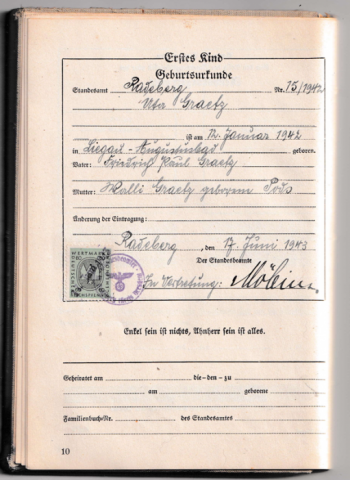 Erstes Kind
Geburtsurkunde
Standesamt Radeberg Nr. 15/1942
Uta Graetz
ist am 12. Januar 1942
in Liegau-Augustusbad geboren.
Vater: Friedrich Paul Graetz
Mutter: Walli Graetz geborene
Änderung der Eintragung:
Radeberg, den 17. Juni 1943
Der Standesbeamte
In Vertretung:
Enkel sein ist nichts, Ahnherr sein ist alles.
Geheiratet am die-den-zu
am geborene
Familienbuch-Nr. des Standesamtes
10